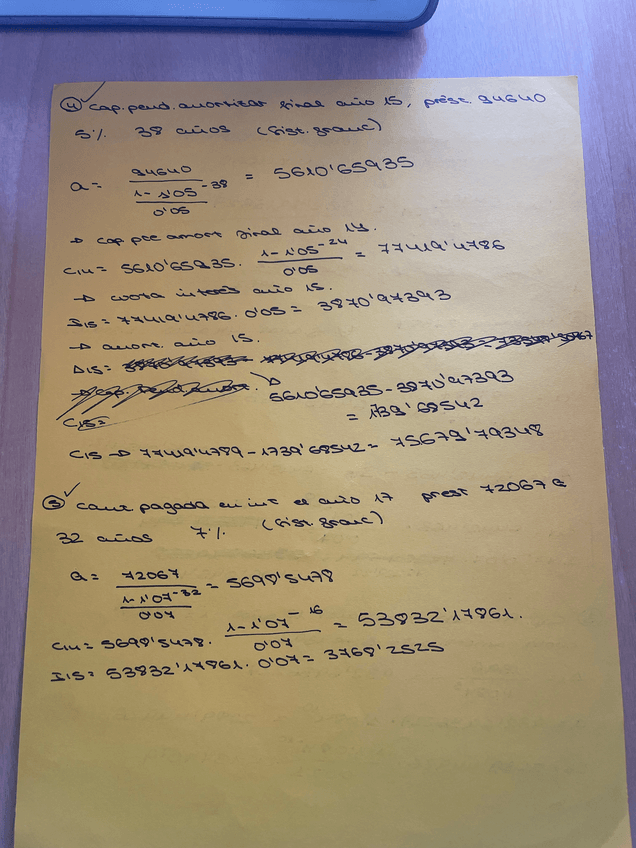 ④ cap. pend. amortizar final año 15, prést. 94640
5% 38 años (Sist. franc)
a = 94640 / ((1-1'05^-38) / 0'05) = 5610'65935
→ cap pte amort final año 14.
C14 = 5610'65935 · (1-1'05^-24) / 0'05 = 77419'4786
→ cuota interés año 15.
I15 = 77419'4786 · 0'05 = 3870'97393
→ amort. año 15.
A15 =
5610'65935 - 3870'97393
= 1739'68542
C15 =
C15 → 77419'4789 - 1739'68542 = 75679'79348
⑤ cant. pagada en int el año 17 prest 72067 €
32 años 7% (Sist. franc)
a = 72067 / ((1-1'07^-32) / 0'07) = 5698'5478
C14 = 5698'5478 · (1-1'07^-16) / 0'07 = 53832'17861.
I15 = 53832'17861 · 0'07 = 3768'2525